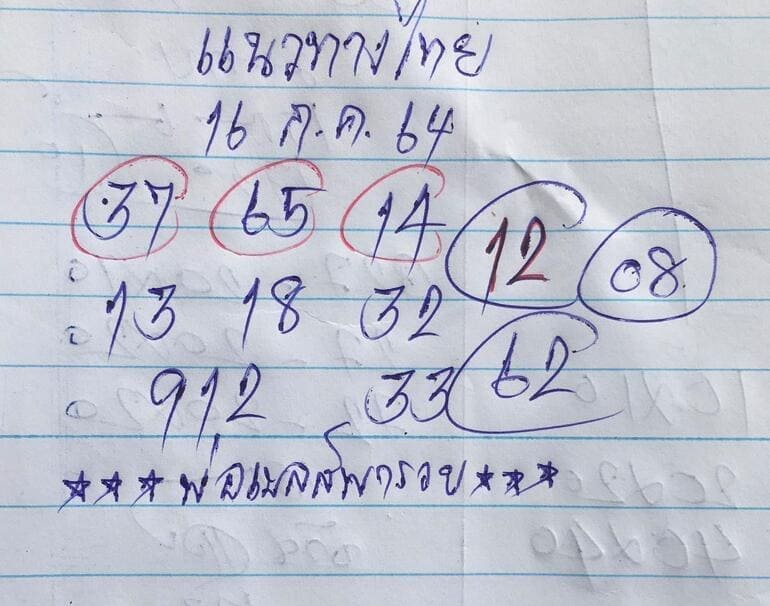 แนวทางไทย
16 ก.ค. 64
37 65 14 12 08
13 18 32
912 33 62
***พ่อเมลส์พารวย***